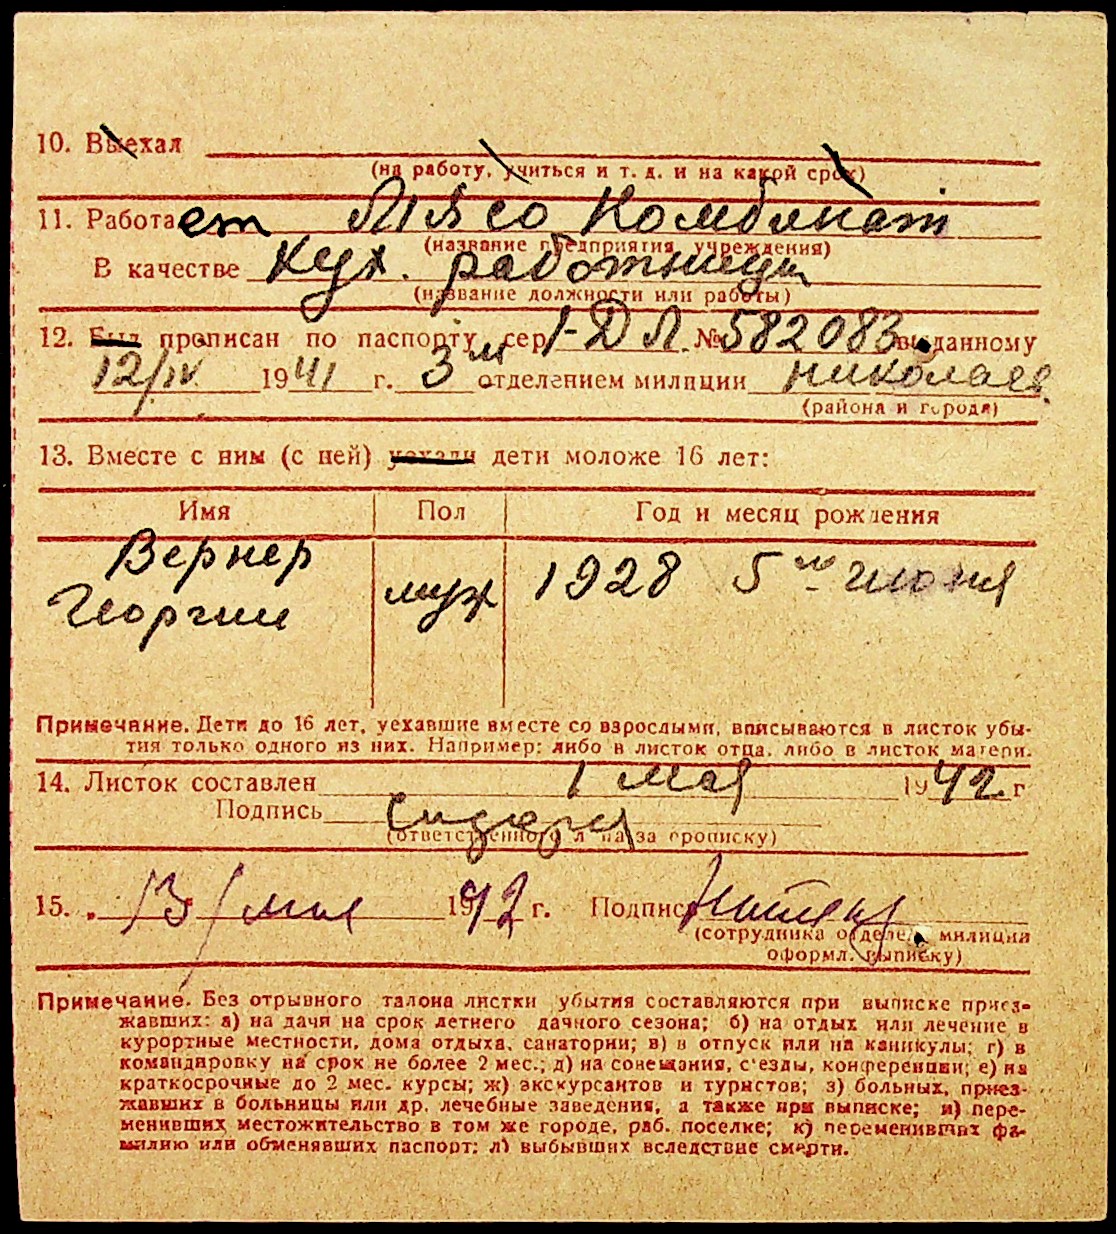 10. Выехал
(на работу, учиться и т. д. и на какой срок)
11. Работает Мясо Комбинат
(название предприятия, учреждения)
В качестве Кух. работницы
(название должности или работы)
12. Был прописан по паспорту сер. I-ДЛ № 582083 выданному
12/IV 1941 г. 3м отделением милиции Николаев.
(района и города)
13. Вместе с ним (с ней) уехали дети моложе 16 лет:
Имя Пол Год и месяц рождения
Вернер
Георгии муж 1928 5го июня
Примечание. Дети до 16 лет, уехавшие вместе со взрослыми, вписываются в листок убы-
тия только одного из них. Например: либо в листок отца, либо в листок матери.
14. Листок составлен 1 мая 1942 г
Подпись
(ответственного л на за прописку)
15. „ 13 мая 1942 г. Подпись
(сотрудника отделен. милиции
оформл. выписку)
Примечание. Без отрывного талона листки убытия составляются при выписке приез-
жавших: а) на дачи на срок летнего дачного сезона; б) на отдых или лечение в
курортные местности, дома отдыха, санатории; в) в отпуск или на каникулы; г) в
командировку на срок не более 2 мес.; д) на совещания, с'езды, конференции; е) на
краткосрочные до 2 мес. курсы; ж) экскурсантов и туристов; з) больных, приез-
жавших в больницы или др. лечебные заведения, а также при выписке; и) пере-
менивших местожительство в том же городе, раб. поселке; к) переменивших фа-
милию или обменявших паспорт; л) выбывших вследствие смерти.